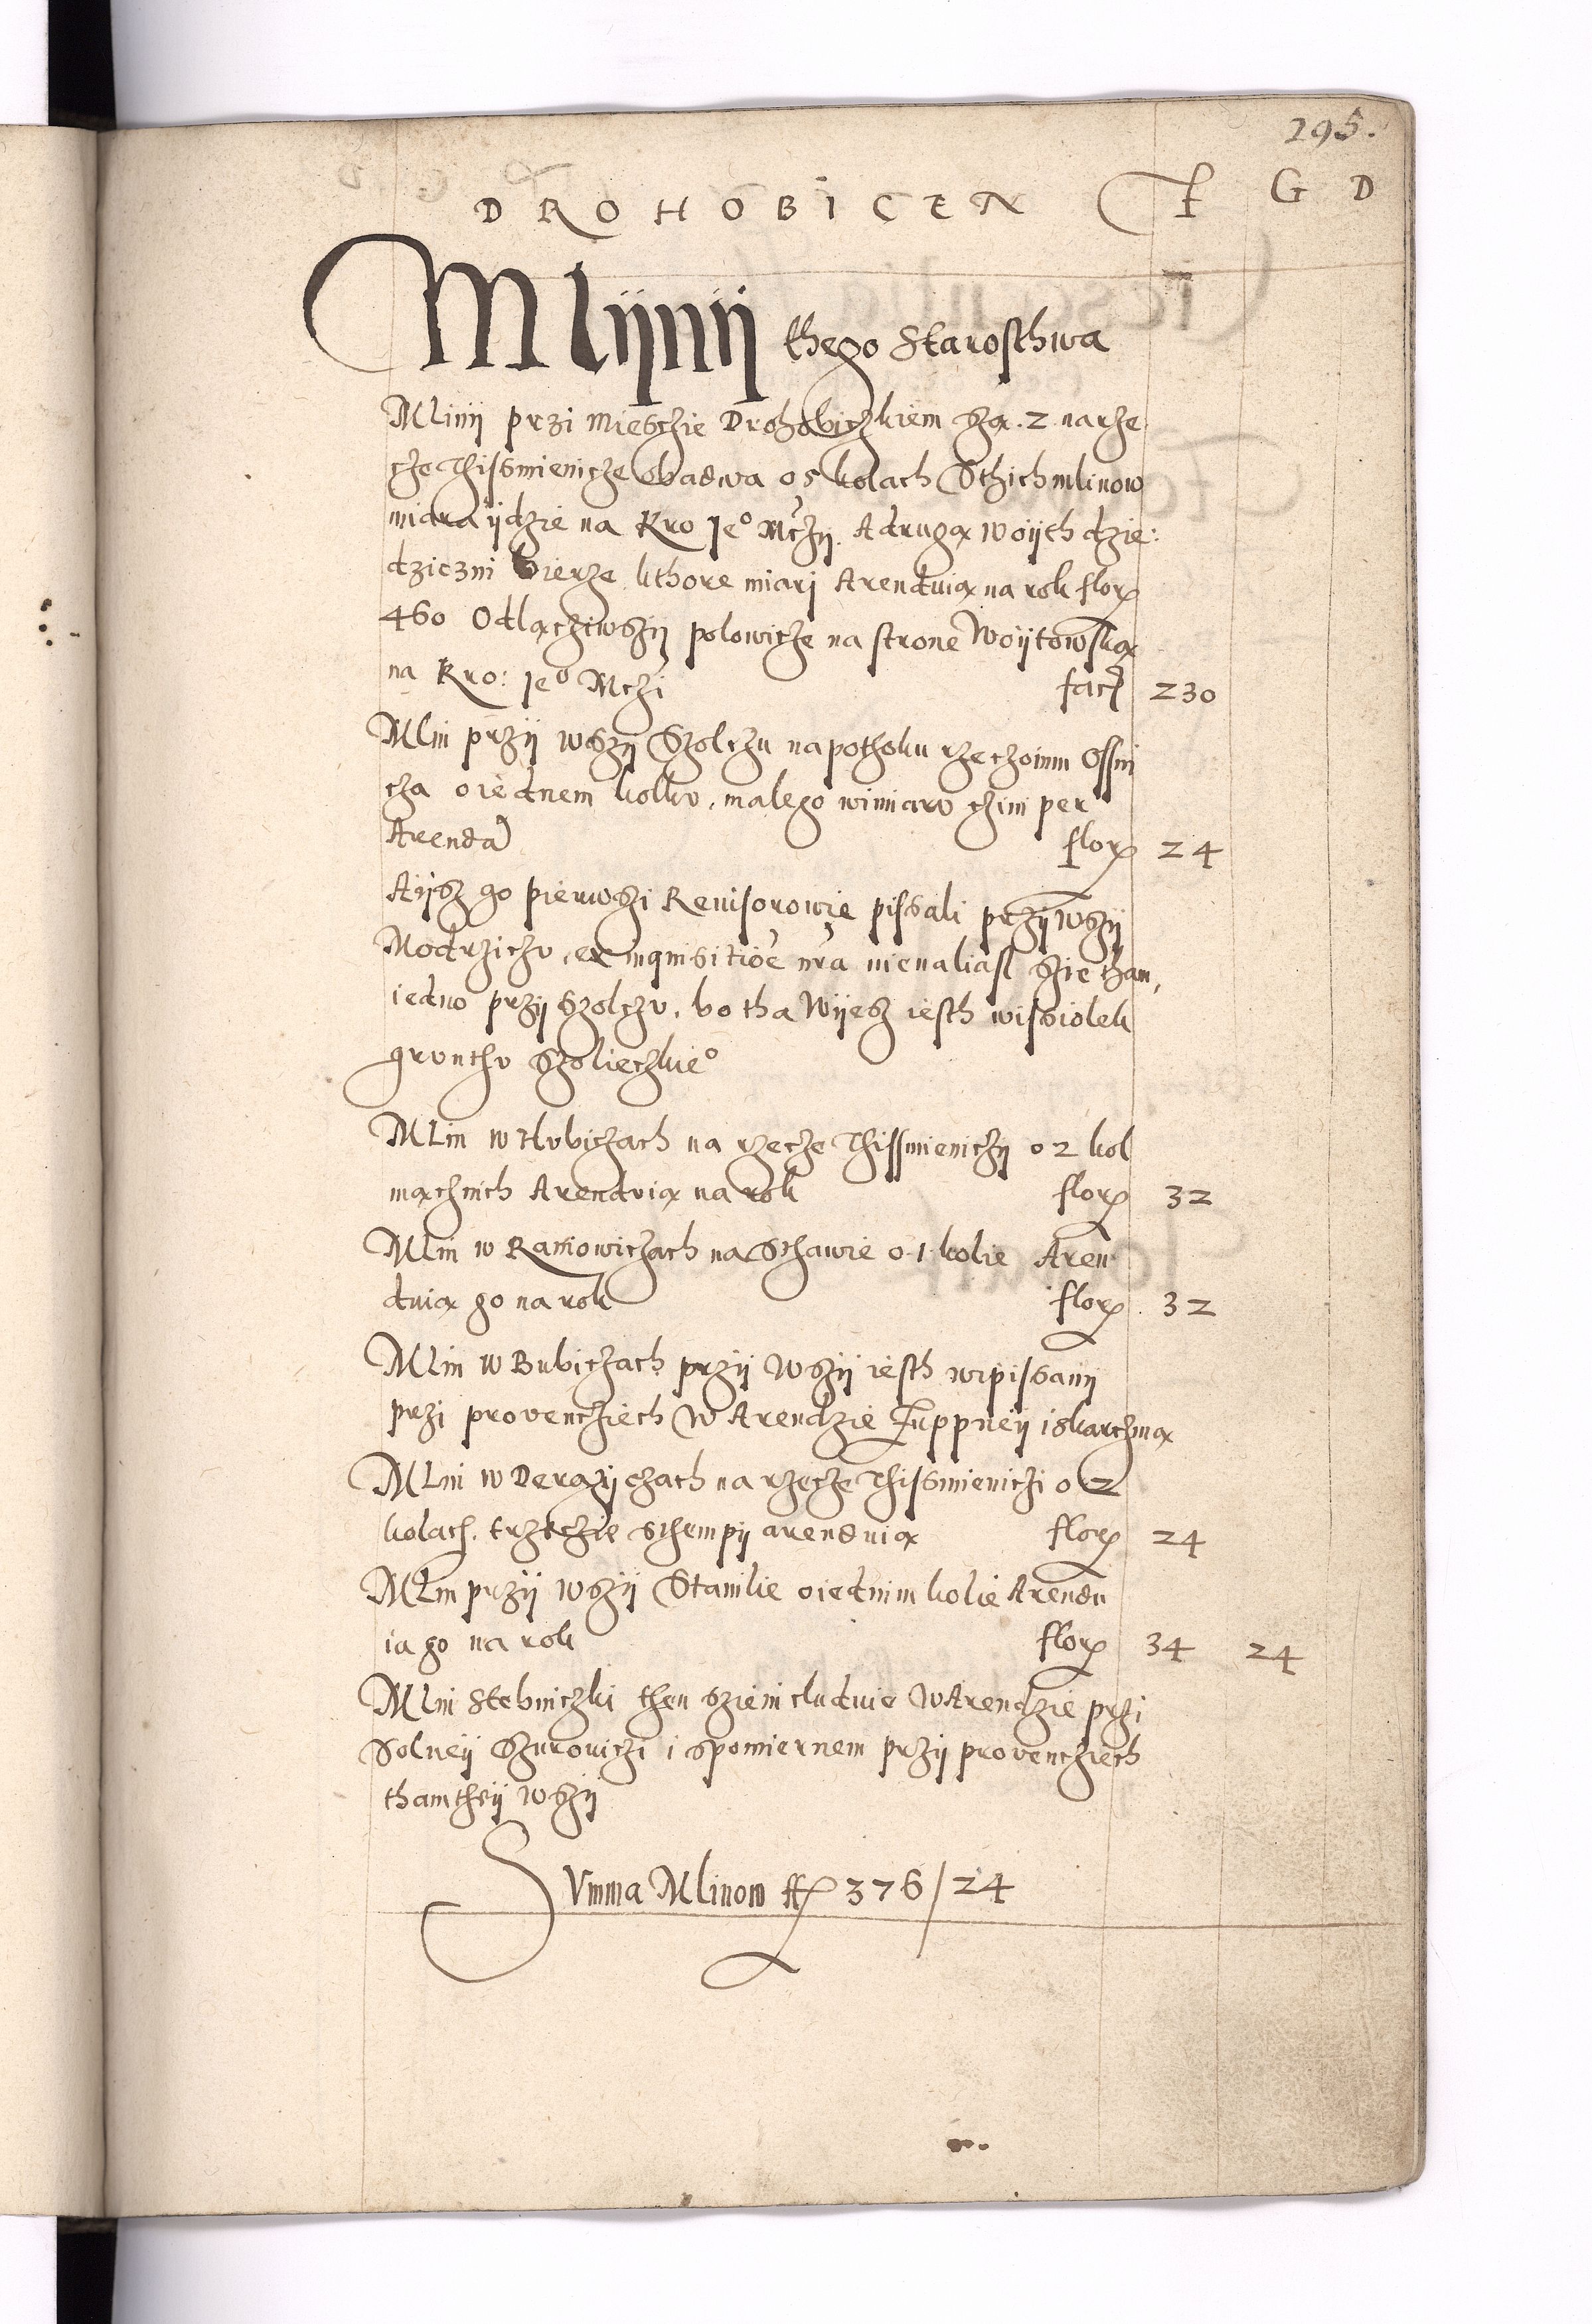 295.
DROHOBICEN F G D
Mlijnij thego Starosthwa
Mlinij przi miesczie Drohobiczkiem sza. 2. na rze
cze Thisśmienicze obadwa o 5 kolach S thich mlinow
miara ijdzie na Kro Jeº Mczij. A druga woijth dzie:
dziczni bierze kthore miari Arenduia na rok flor
460 Odlacziwszij polowicze na strone Woijtowska
na Kro: Jeº Mczi facj 230
Mlin przij wszij Szolczu na pothoku rzeczoinm Ossni
cza o iednem kolku, malego wimiaru czini per
Arenda flor 24
Aijsz go pierwszi Reuisorowie pissali przij wszij
Modrziczu, ex inquisitioe nra nie naliasl szie tham,
iedno przij Szolczu, bo tha Wijesz iesth wissiolek
gronthu Szolieczkieº
Mlin w Hubiczach na rzecze Thissmieniczij o 2 kol
macznich Arenduia na rok flor 32
Mlin w Raniowiczach na Sthawie o 1 kolie Aren
duia go na rok flor 32
Mlin w Bubiczach przij wszij iesth wipissanij
przi prouencziech w Arendzie Zuppneij i s karczma
Mlin w Derazijczach na rzecze Thissmieniczi o 2
kolach, trzeczie sthempij arenduia flor 24
Mlin przij wszij Stanilie o iednim kolie Arendu
ia go na rok flor 34 24
Mlin Stebniczki then sziem cluduie w Arendzie przi
Solneij Szurouiczi i s pomiernem przij prouencziech
thamtheij wszij
Summa Mlinow ff 376/24